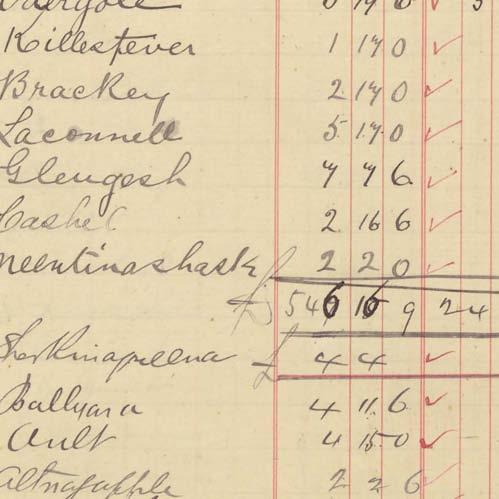 Killestever 1 17 0 ✓
Brackey 2 17 0 ✓
Laconnell 5 17 0 ✓
Glengesh 7 7 6 ✓
Cashel 2 16 6 ✓
Meentinashask £ 2 2 0 ✓
£ 546 15 9 24
£ 4 4 ✓
Ballyara 4 11 6 ✓
Ault 4 15 0 ✓
Altnagapple 2 2 6 ✓